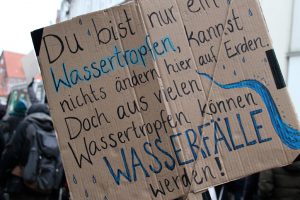 Du bist nur ein
Wassertropfen, kannst
nichts ändern hier auf Erden.
Doch aus vielen
Wassertropfen können
WASSERFÄLLE
werden!